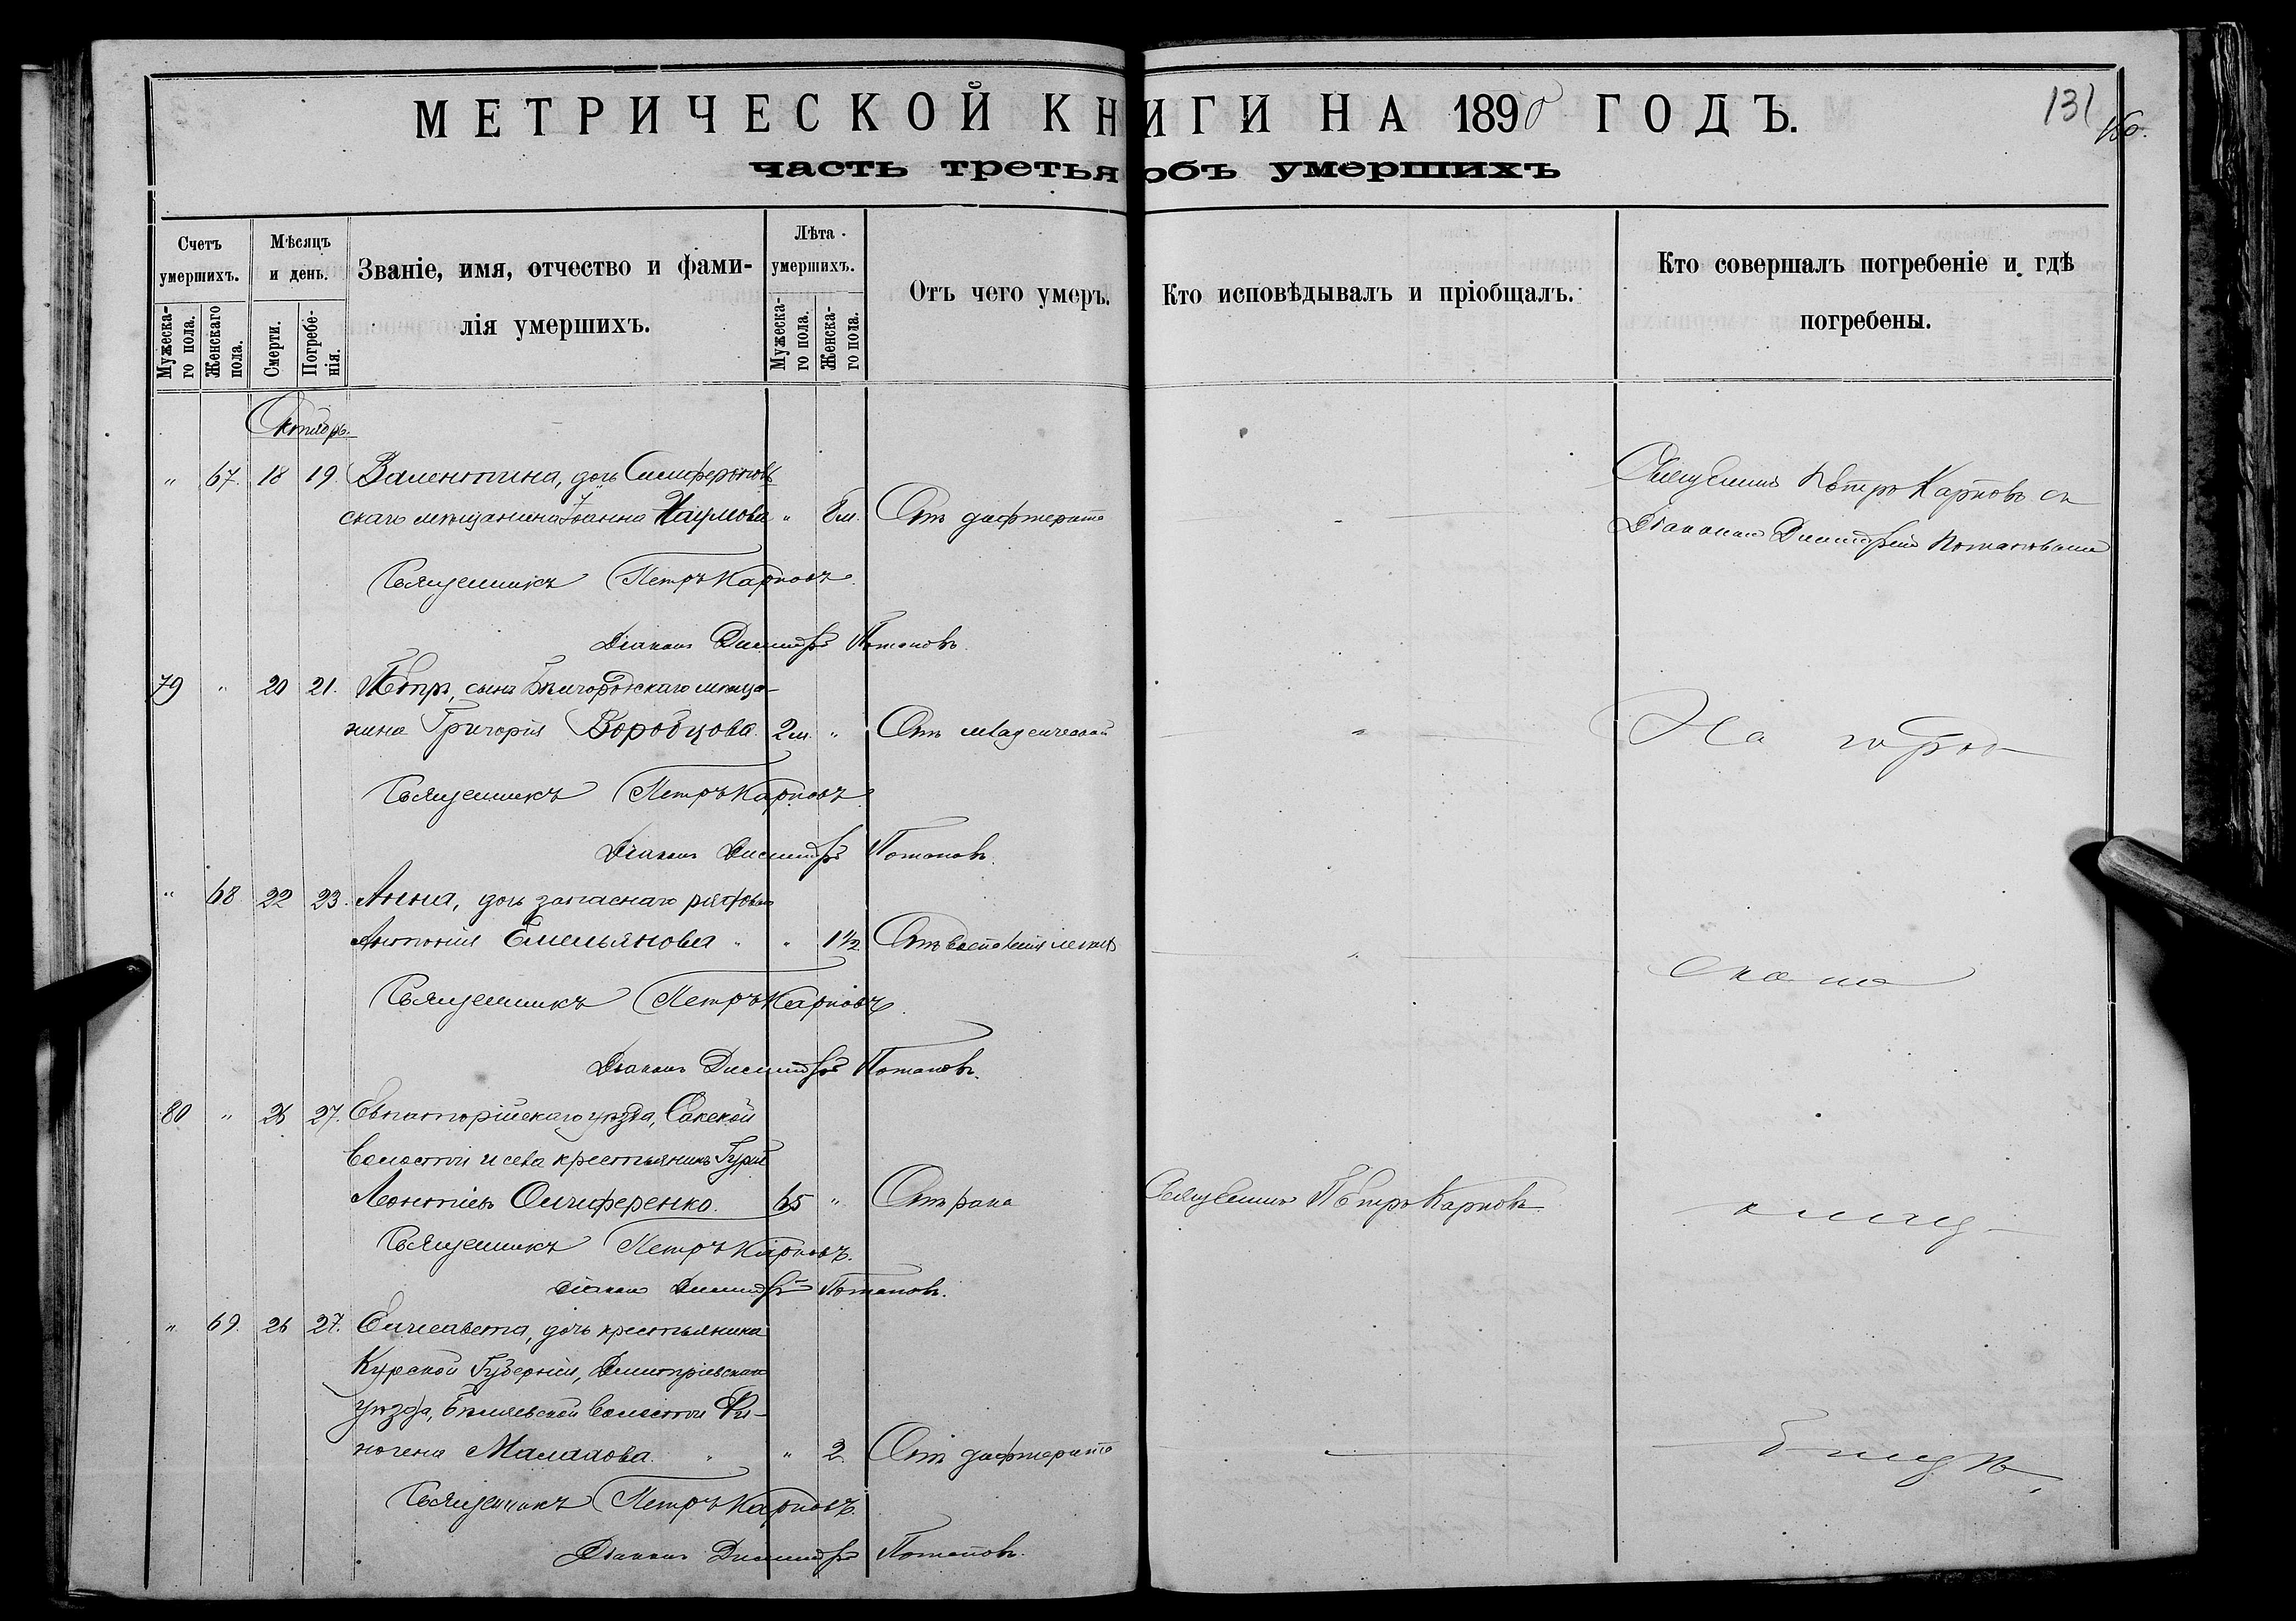 МЕТРИЧЕСКОЙ КНИГИ НА 1890 ГОДЪ.
131
часть третья объ умершихъ
Счетъ умершихъ.
Мѣсяцъ и день.
Званіе, имя, отчество и фами-
лія умершихъ.
Лѣта умершихъ.
Отъ чего умеръ.
Кто исповѣдывалъ и пріобщалъ.
Кто совершалъ погребеніе и гдѣ
погребены.
Мужеска-
го пола.
Женскаго
пола.
Смерти.
Погребе-
нія.
Мужеска-
го пола.
Женска-
го пола.
Октябрь.
" 67. 18 19. Валентина, дочь Симферополь
скаго мѣщанина Іоанна Наумова " 8 м. Отъ дифтерита
Священникъ Петръ Карповъ съ
Діакономъ Димитріемъ Потаповымъ
Священникъ Петръ Карповъ.
Діаконъ Димитрій Потаповъ.
79 " 20 21. Петръ, сынъ Бѣлгородскаго мѣща-
нина Григорія Воробцова. 2 м. " Отъ младенческой
На город-
Священникъ Петръ Карповъ
Діаконъ Димитрій Потаповъ.
" 68 22 23. Анна, дочь запаснаго рядов.
Антонія Емельянова " " 1½ Отъ воспаленія легкихъ
скомъ
Священникъ Петръ Карповъ.
Діаконъ Димитрій Потаповъ.
80 " 26 27. Евпаторійскаго уѣзда, Сакской
волости и села крестьянинъ Гурій
Леонтіевъ Олиференко. 65 " Отъ рака
Священникъ Петръ Карповъ
кладб-
Священникъ Петръ Карповъ.
Діаконъ Димитрій Потаповъ.
" 69. 26 27. Елисавета, дочь крестьянина
Курской Губерніи, Димитріевскаго
уѣзда, Бѣляевской волости
Малахова. " " 2 Отъ дифтерита
Священникъ Петръ Карповъ.
Діаконъ Димитрій Потаповъ.